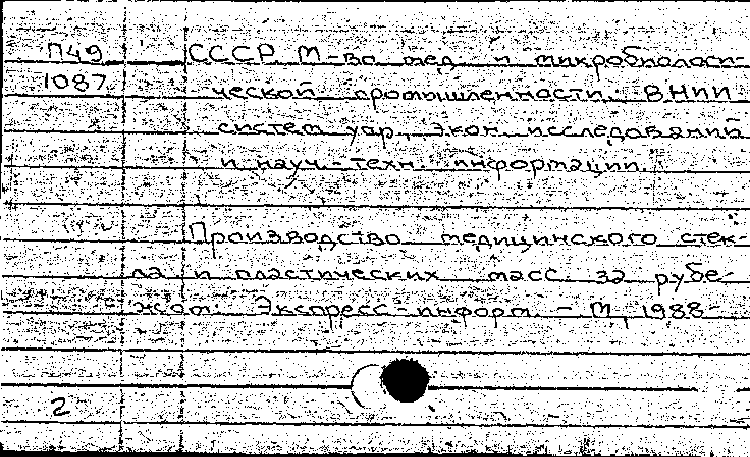 П49 СССР. М-во мед. и микробиологи-
1087 ческой промышленности. ВНИИ
систем. упр., экон. исследований
и науч.-техн. информации.
Производство медицинского стек-
ла и пластических масс за рубе-
жом: Экспресс-информ. - М., 1988-
2